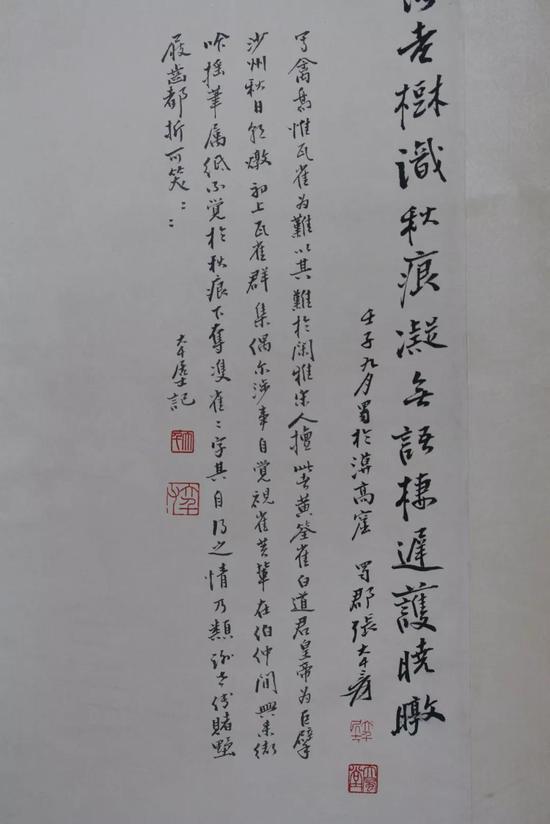 老樹識秋痕凝無語棲遲護曉暾
壬子九月寫於漠高窟 蜀郡張大千爰
写禽鳥惟瓦雀為難以其難於閑雅宋人擅此者黃筌崔白道君皇帝為巨擘
沙州秋日朝暾初上瓦雀群集偶尔涉筆自覺視崔黃輩在伯仲間興來
搖筆属紙不覺於秋痕下奪雀々字其自得之情乃類謝老傅賭墅
屐齒都折可笑々々
大千居士記